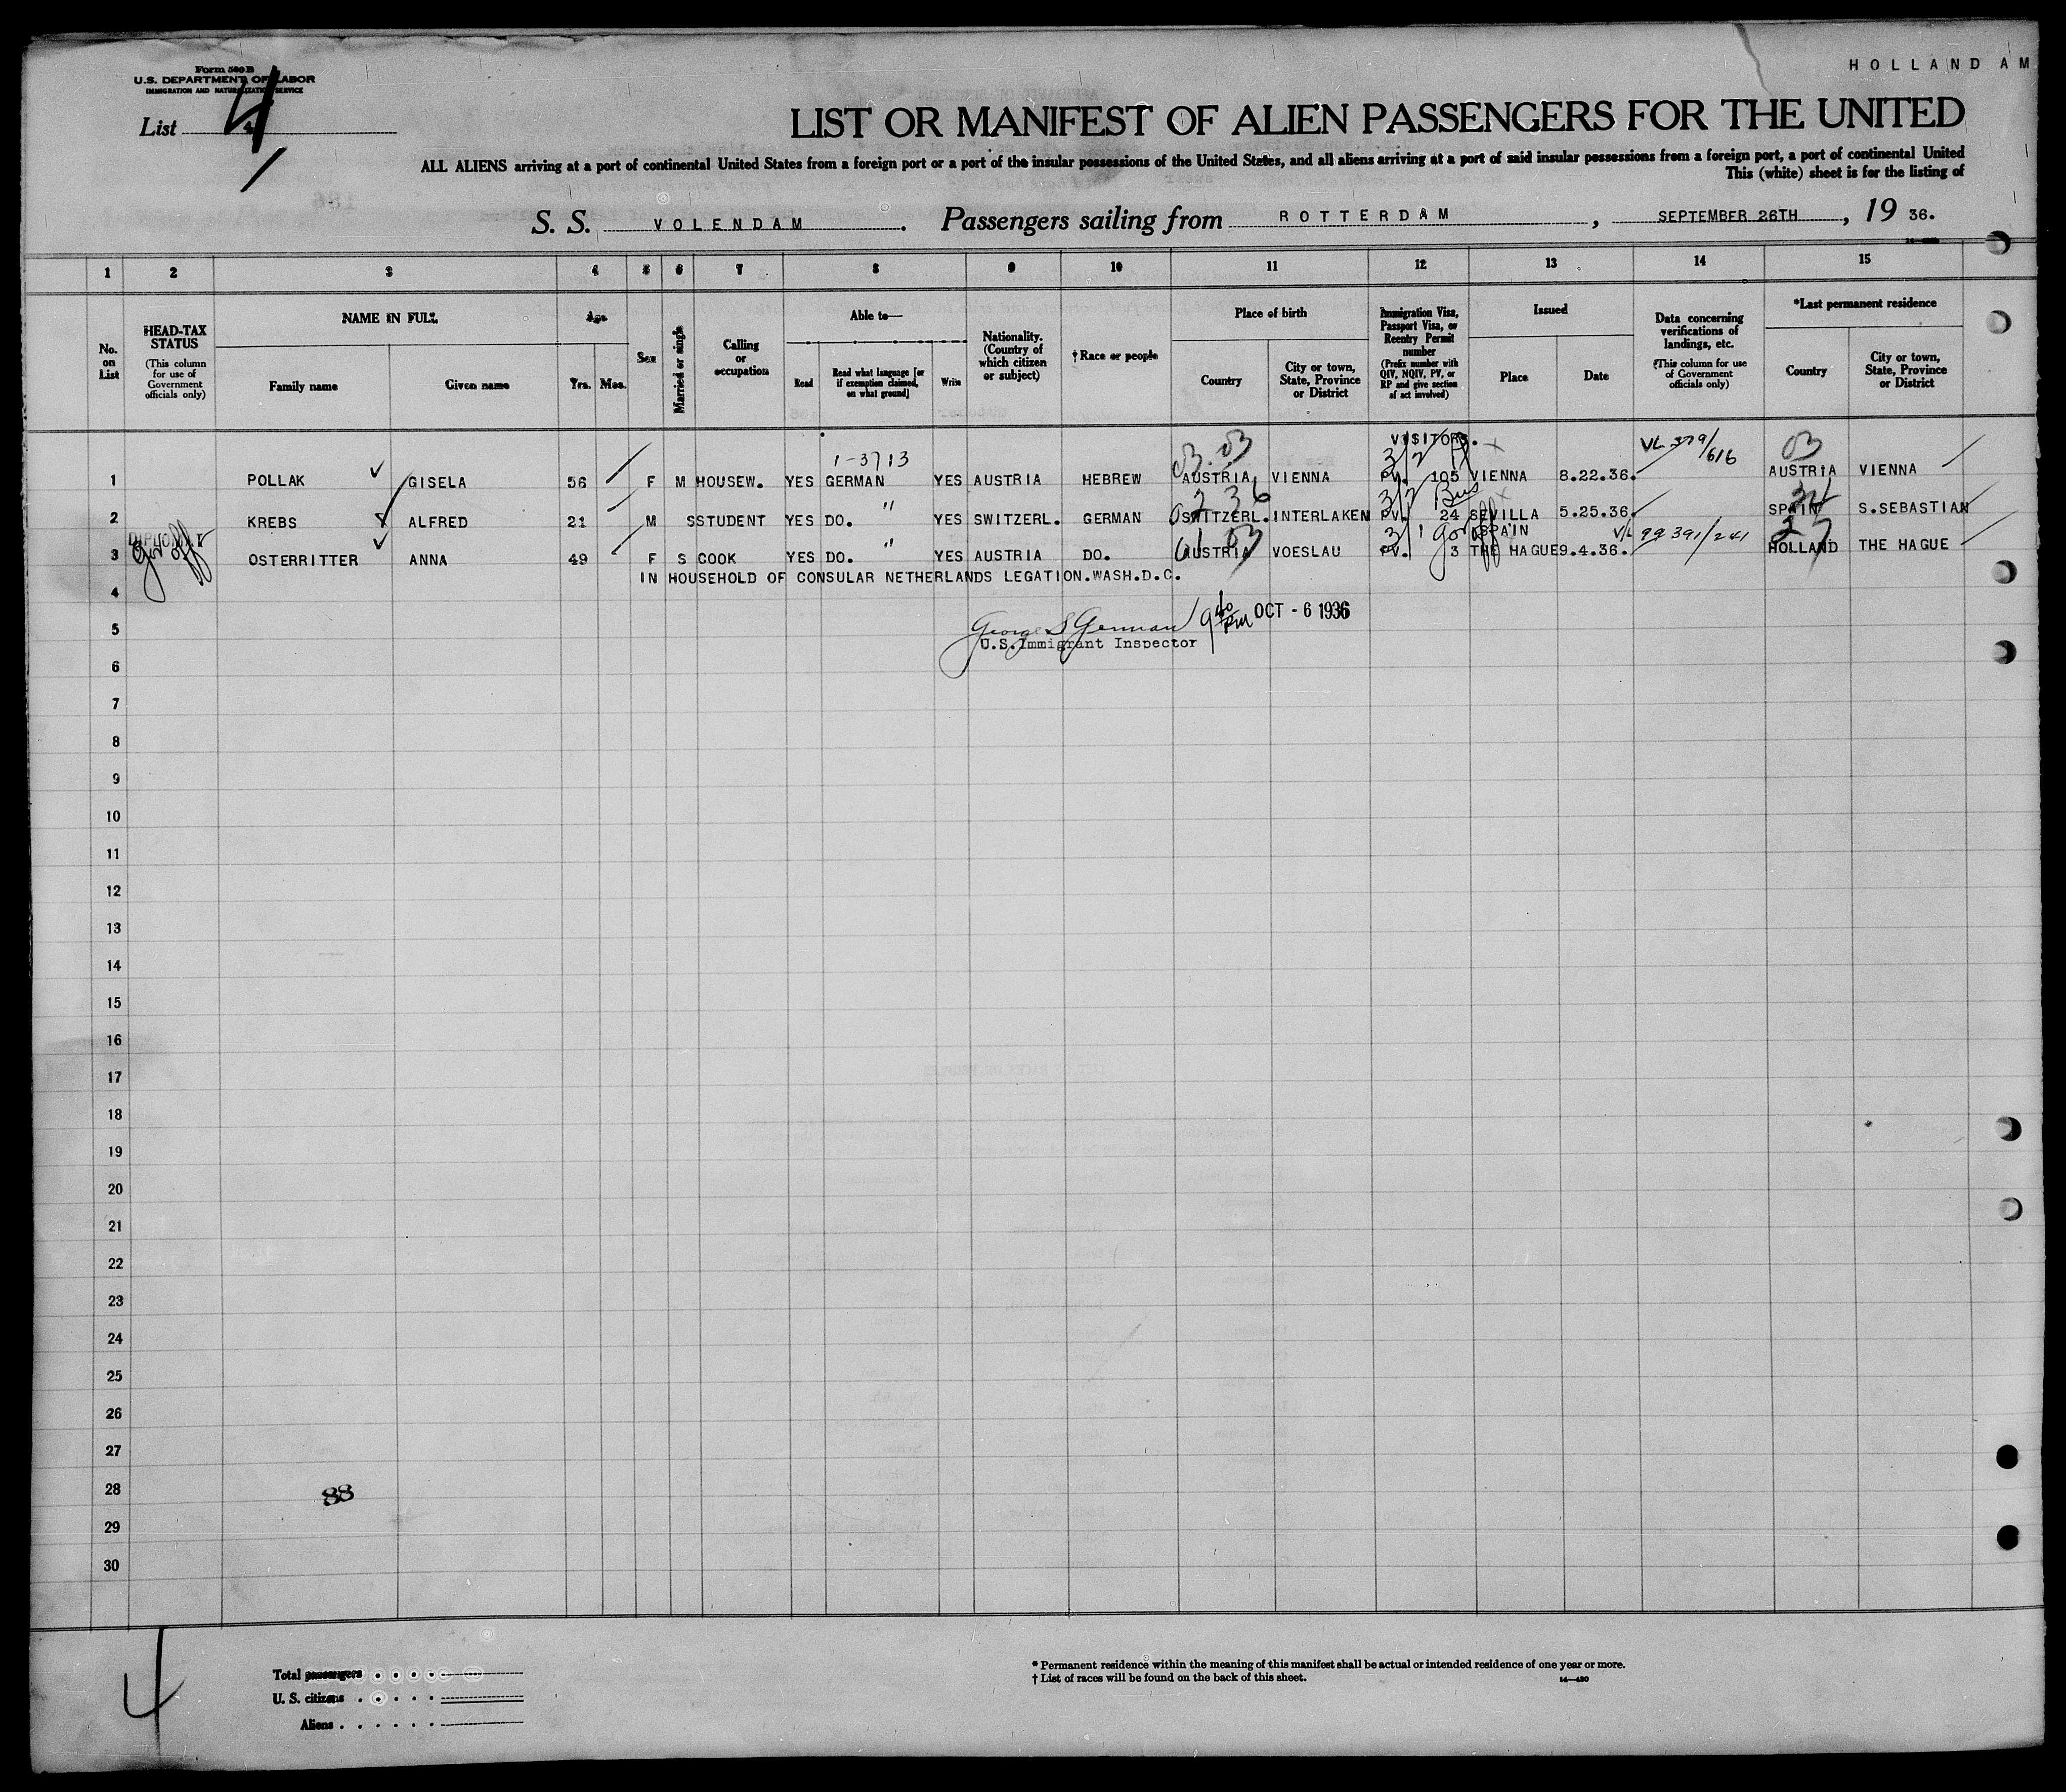 HOLLAND AM
Form 500 B
U.S. DEPARTMENT OF LABOR
IMMIGRATION AND NATURALIZATION SERVICE
List 4
4
LIST OR MANIFEST OF ALIEN PASSENGERS FOR THE UNITED
ALL ALIENS arriving at a port of continental United States from a foreign port or a port of the insular possessions of the United States, and all aliens arriving at a port of said insular possessions from a foreign port, a port of continental United
This (white) sheet is for the listing of
S. S. VOLENDAM. Passengers sailing from ROTTERDAM, SEPTEMBER 26TH, 19 36.
1 2 3 4 5 6 7 8 9 10 11 12 13 14 15
No. on List
HEAD-TAX STATUS
(This column for use of Government officials only)
NAME IN FULL
Family name
Given name
Age
Yrs. Mos.
Sex
Married or single
Calling or occupation
Able to—
Read
Read what language [or if exemption claimed, on what ground]
Write
Nationality. (Country of which citizen or subject)
† Race or people
Place of birth
Country
City or town, State, Province or District
Immigration Visa, Passport Visa, or Reentry Permit number
(Prefix number with QIV, NQIV, PV, or RP and give section of act involved)
Issued
Place
Date
Data concerning verifications of landings, etc.
(This column for use of Government officials only)
*Last permanent residence
Country
City or town, State, Province or District
VISITORS.
1-3713
03.03
3/2
VL 379/616
03
1 POLLAK GISELA 56 F M HOUSEW. YES GERMAN YES AUSTRIA HEBREW AUSTRIA VIENNA PV. 105 VIENNA 8.22.36. AUSTRIA VIENNA
" 2 36 3/2 Bus
2 KREBS ALFRED 21 M S STUDENT YES DO. YES SWITZERL. GERMAN SWITZERL. INTERLAKEN PV. 24 SEVILLA 5.25.36. SPAIN S.SEBASTIAN
SPAIN
DIPLOMAT
Gov off
" 03 3/1 Gov off V/L 99391/241
3 OSTERRITTER ANNA 49 F S COOK YES DO. YES AUSTRIA DO. AUSTRIA VOESLAU PV. 3 THE HAGUE 9.4.36. HOLLAND THE HAGUE
IN HOUSEHOLD OF CONSULAR NETHERLANDS LEGATION.WASH.D.C.
4
George S German OCT - 6 1936
5
U.S.Immigrant Inspector
6
7
8
9
10
11
12
13
14
15
16
17
18
19
20
21
22
23
24
25
26
27
28
88
29
30
4
Total passengers
U. S. citizens
Aliens
* Permanent residence within the meaning of this manifest shall be actual or intended residence of one year or more.
† List of races will be found on the back of this sheet.
14—430